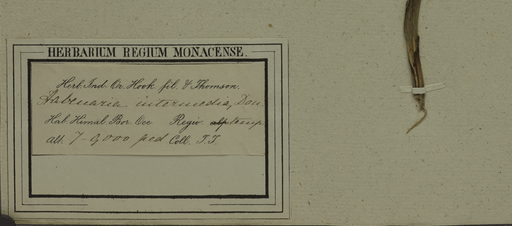 HERBARIUM REGIUM MONACENSE.
Herb. Ind. Or. Hook fil. & Thomson.
Habenaria intermedia, Don.
Hab. Himal. Bor. Occ Regio alp temp.
alt. 7-9,000 ped Coll. T.T.